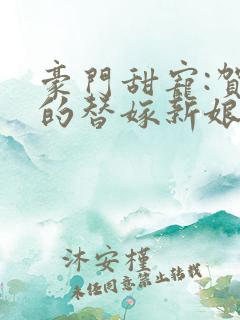 豪門甜寵:賀
的替嫁新娘
沐安槿
未经同意禁止转载